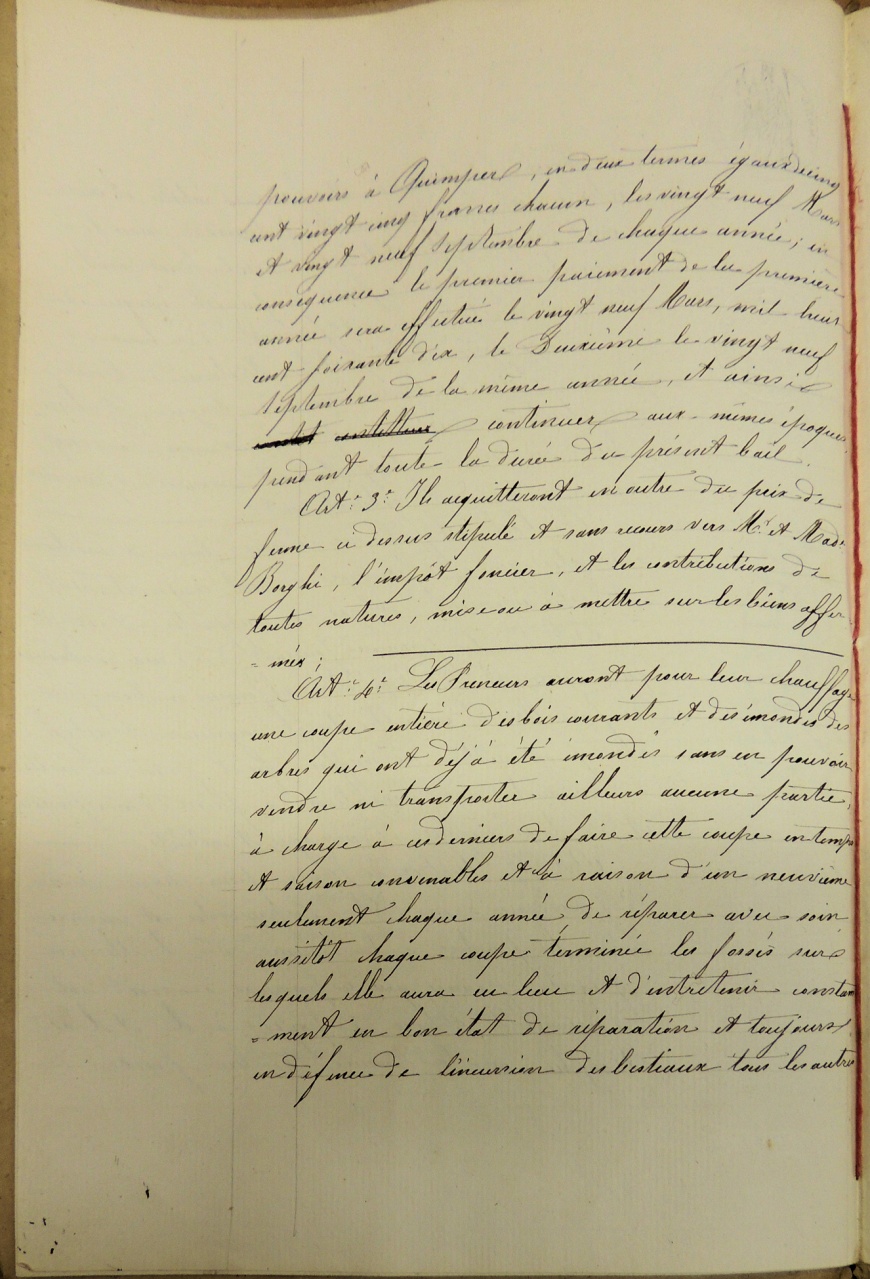 pouvoirs à Quimper, en deux termes égaux de cinq
cent vingt cinq francs chacun, les vingt neuf Mars
et vingt neuf septembre de chaque année; en
conséquence le premier paiement de la première
année sera effectué le vingt neuf Mars, mil huit
cent soixante dix, le Deuxième le vingt neuf
septembre de la même année, et ainsi
continuer aux mêmes époques
pendant toute la durée du présent bail.
Art.e 3.e Ils acquitteront en outre du prix de
ferme ci dessus stipulé et sans recours vers Mr. et Made
Borghi, l'impôt foncier, et les contributions de
toutes natures, mises ou à mettre sur les biens affer-
= més;
Art.e 4.e Les Preneurs auront pour leur chauffage
une coupe entière des bois courants et des émondes des
arbres qui ont déjà été émondés sans en pouvoir
vendre ni transporter ailleurs aucune partie,
à charge à ces derniers de faire cette coupe en temps
et saison convenables et à raison d'un neuvième
seulement chaque année, de réparer avec soin
aussitôt chaque coupe terminée les fossés sur
lesquels elle aura eu lieu et d'entretenir constam
= ment en bon état de réparation et toujours
en défense de l'incursion des bestiaux tous les autres